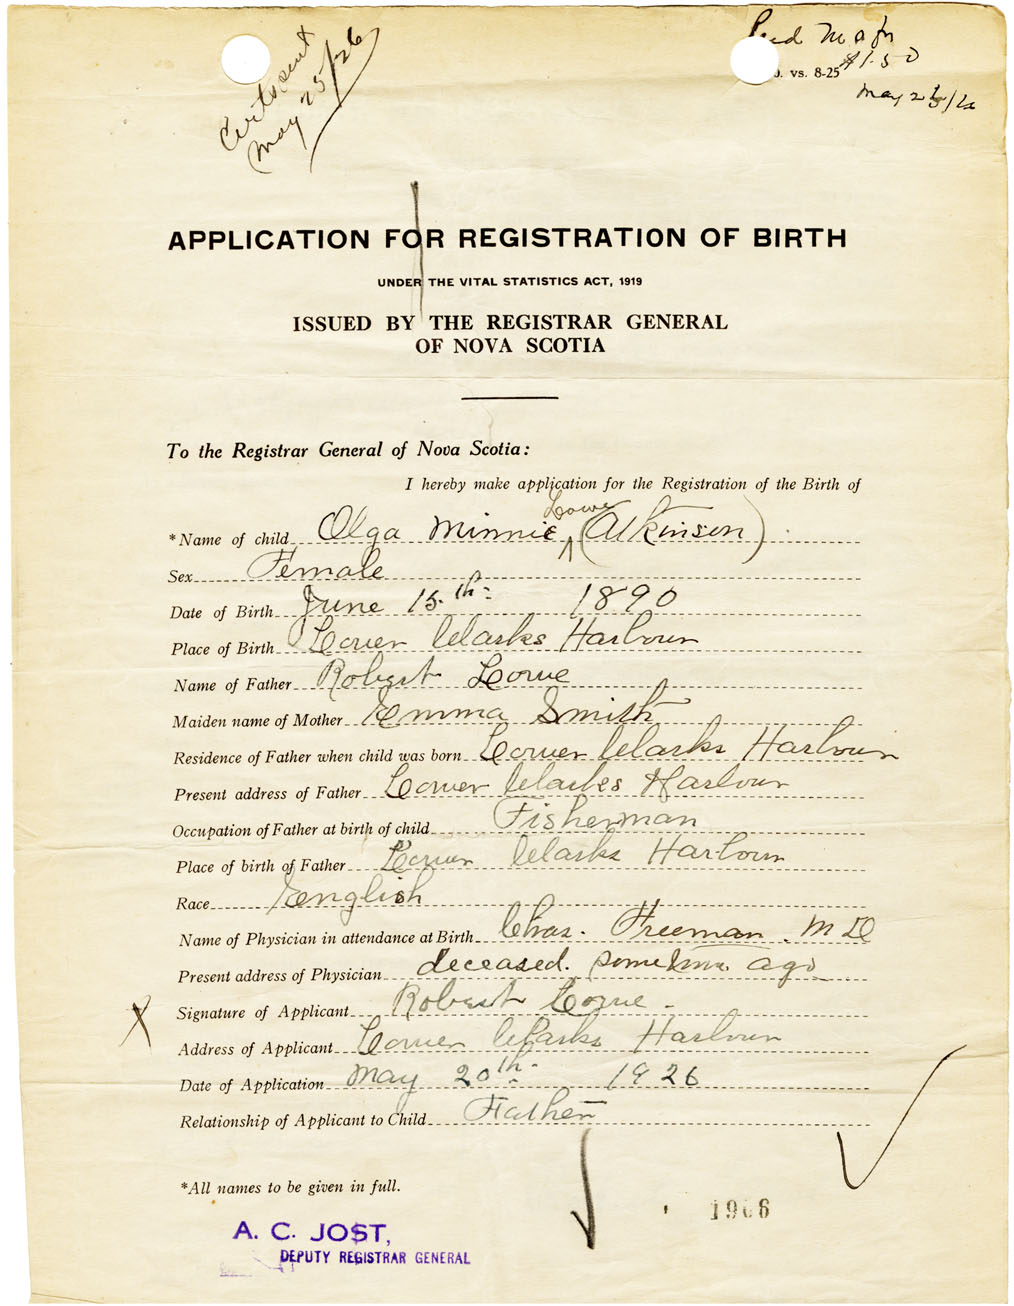 Cert sent
May 25/26
Recd M O fr
$1.50
O. vs. 8-25
May 25/26
APPLICATION FOR REGISTRATION OF BIRTH
UNDER THE VITAL STATISTICS ACT, 1919
ISSUED BY THE REGISTRAR GENERAL
OF NOVA SCOTIA
To the Registrar General of Nova Scotia:
I hereby make application for the Registration of the Birth of
Lowe
*Name of child Olga Minnie ^ (Atkinson)
Sex Female
Date of Birth June 15th 1890
Place of Birth Lower Clarks Harbour
Name of Father Robert Lowe
Maiden name of Mother Emma Smith
Residence of Father when child was born Lower Clarks Harbour
Present address of Father Lower Clarks Harbour
Occupation of Father at birth of child Fisherman
Place of birth of Father Lower Clarks Harbour
Race English
Name of Physician in attendance at Birth Chas. Freeman. M D
Present address of Physician deceased. sometime ago
X Signature of Applicant Robert Lowe
Address of Applicant Lower Clarks Harbour
Date of Application May 20th 1926
Relationship of Applicant to Child Father
*All names to be given in full.
1906
A. C. JOST,
DEPUTY REGISTRAR GENERAL